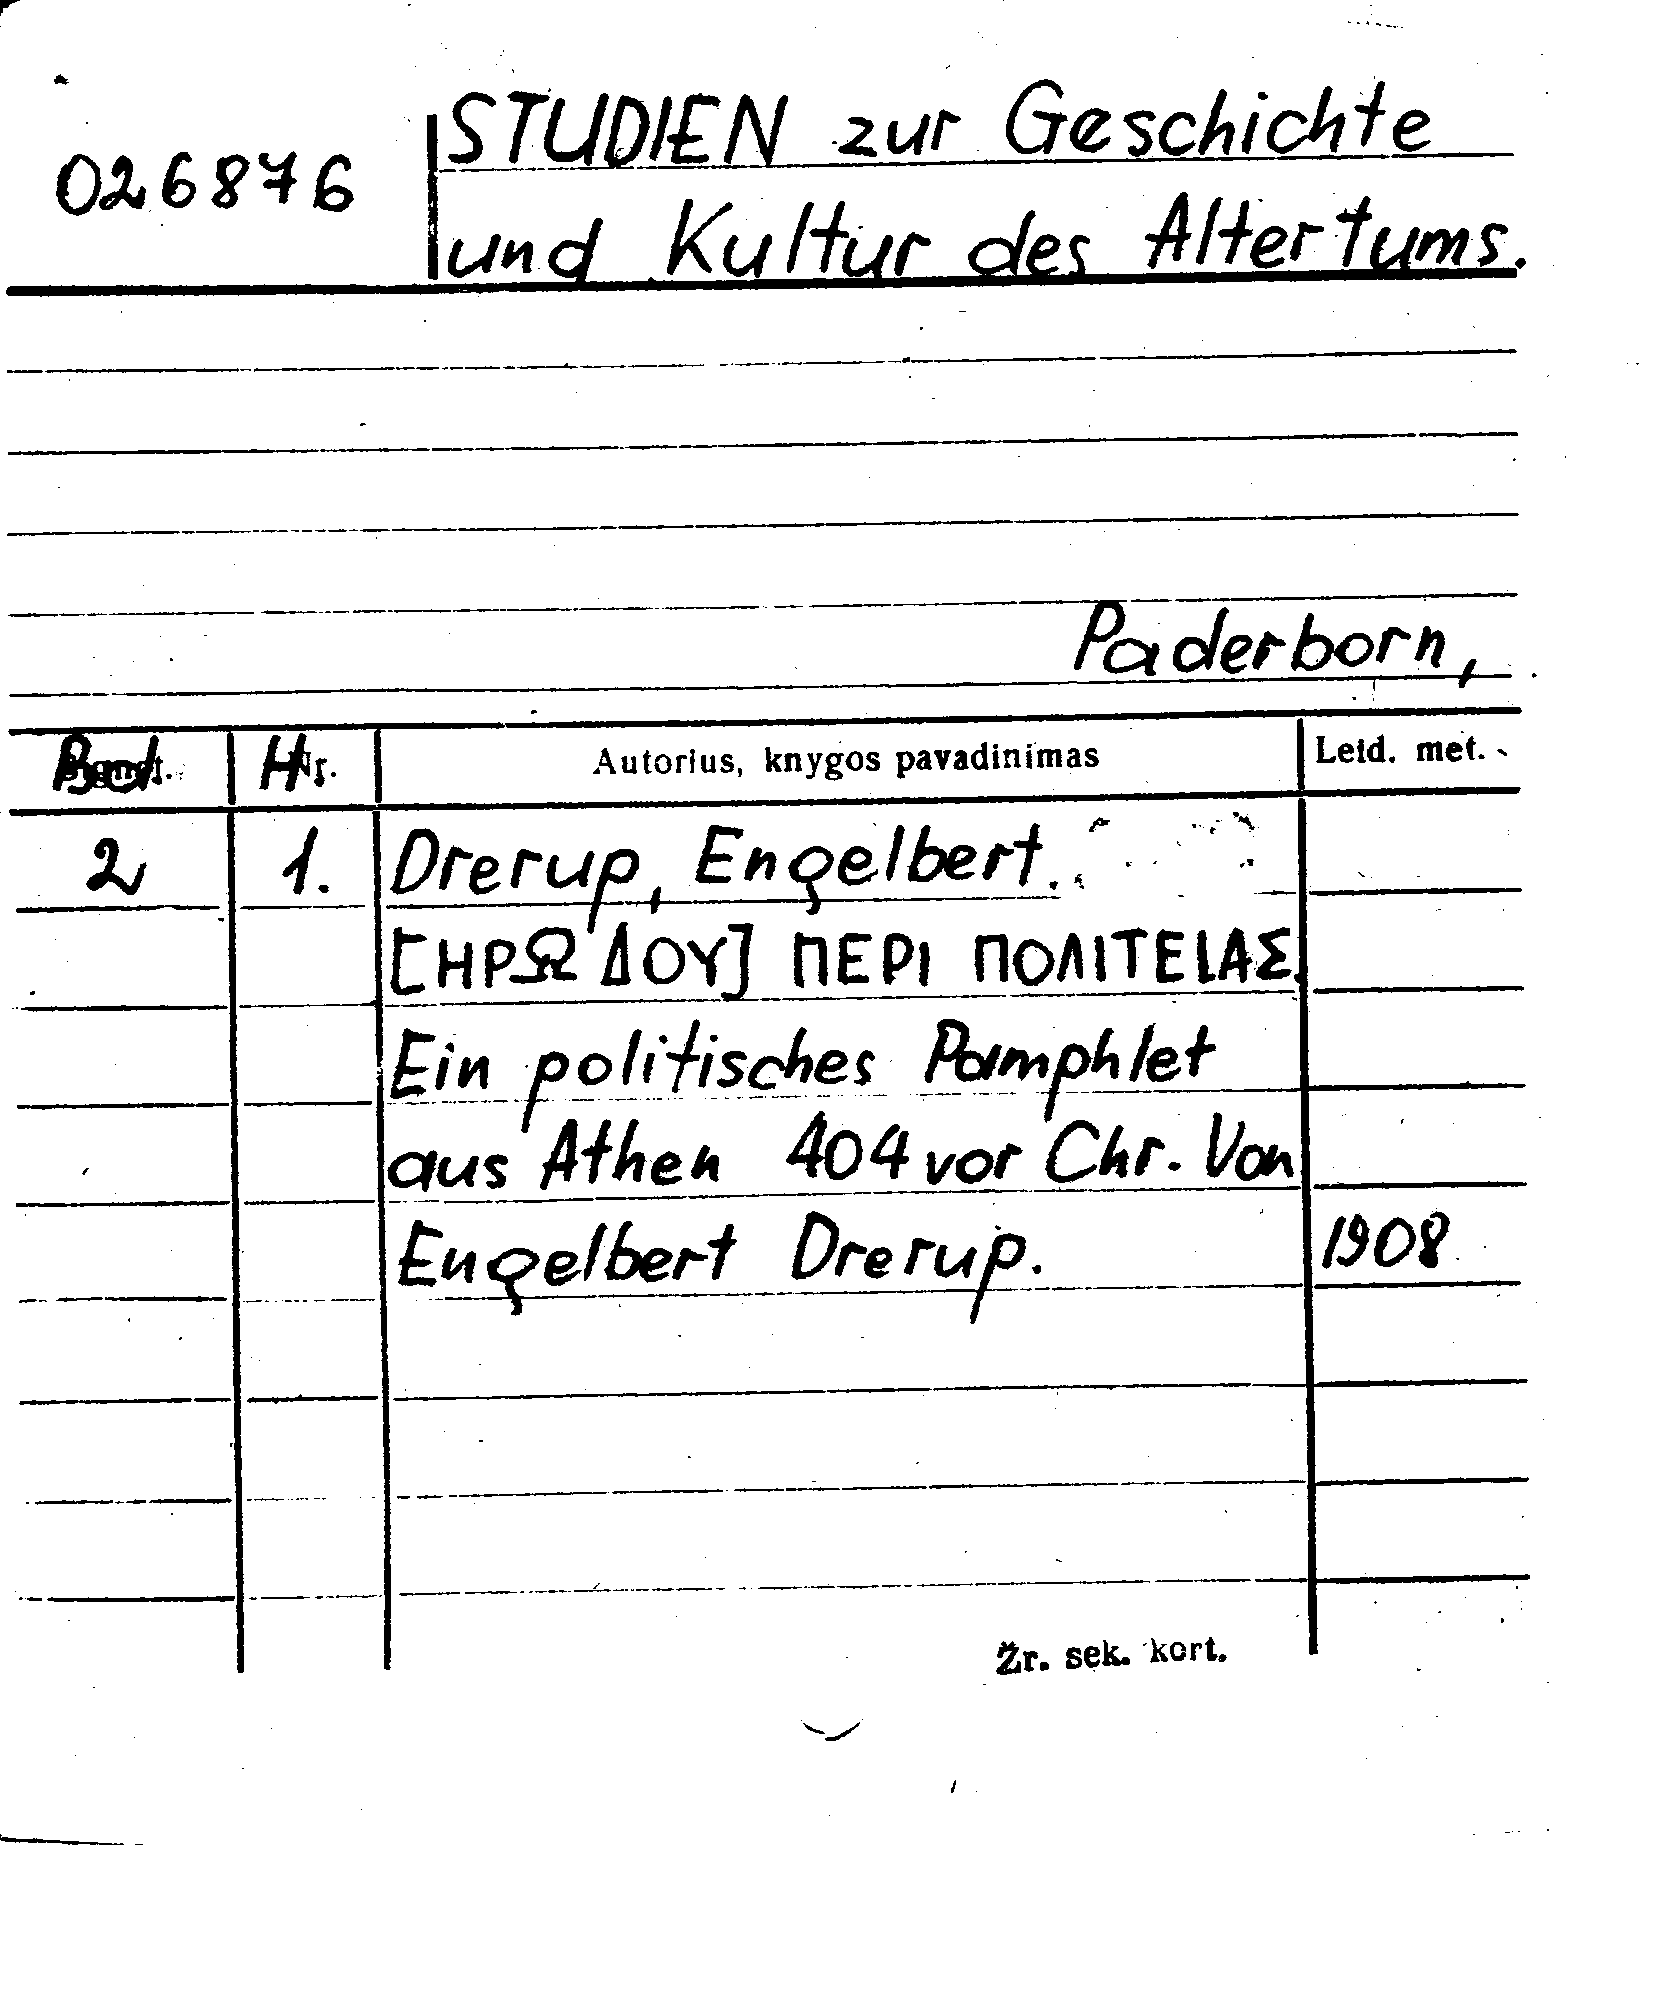 STUDIEN zur Geschichte
026876
und Kultur des Altertums.
Paderborn,
Bd. H. Autorius, knygos pavadinimas Leid. met.
2 1. Drerup, Engelbert.
[ΗΡΩΔΟΥ] ΠΕΡΙ ΠΟΛΙΤΕΙΑΣ.
Ein politisches Pamphlet
aus Athen 404 vor Chr. Von
Engelbert Drerup. 1908
Žr. sek. kort.